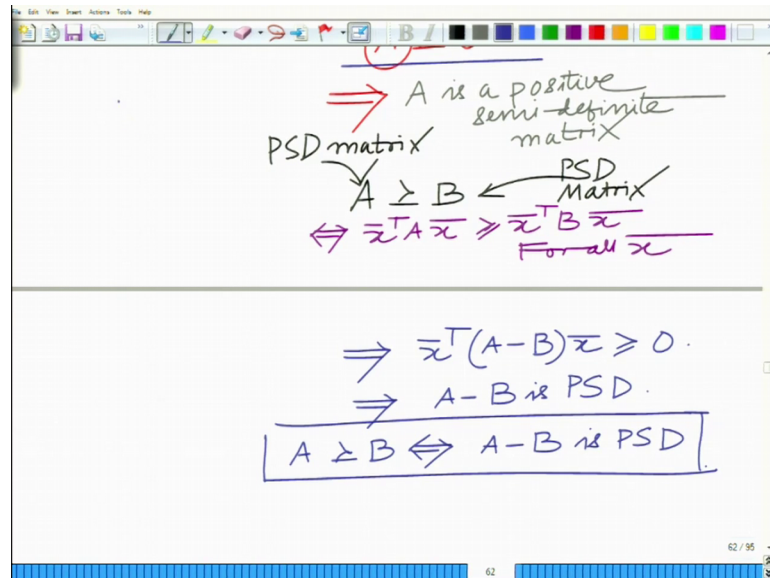 File Edit View Insert Actions Tools Help
B I
⇒ A is a positive
semi-definite
matrix
PSD matrix
PSD
Matrix
A ≽ B
⇔ x̄ᵀA x̄ ≥ x̄ᵀB x̄
For all x̄
⇒ x̄ᵀ(A−B)x̄ ≥ 0.
⇒ A−B is PSD.
A ≽ B ⇔ A−B is PSD
62 / 95
62